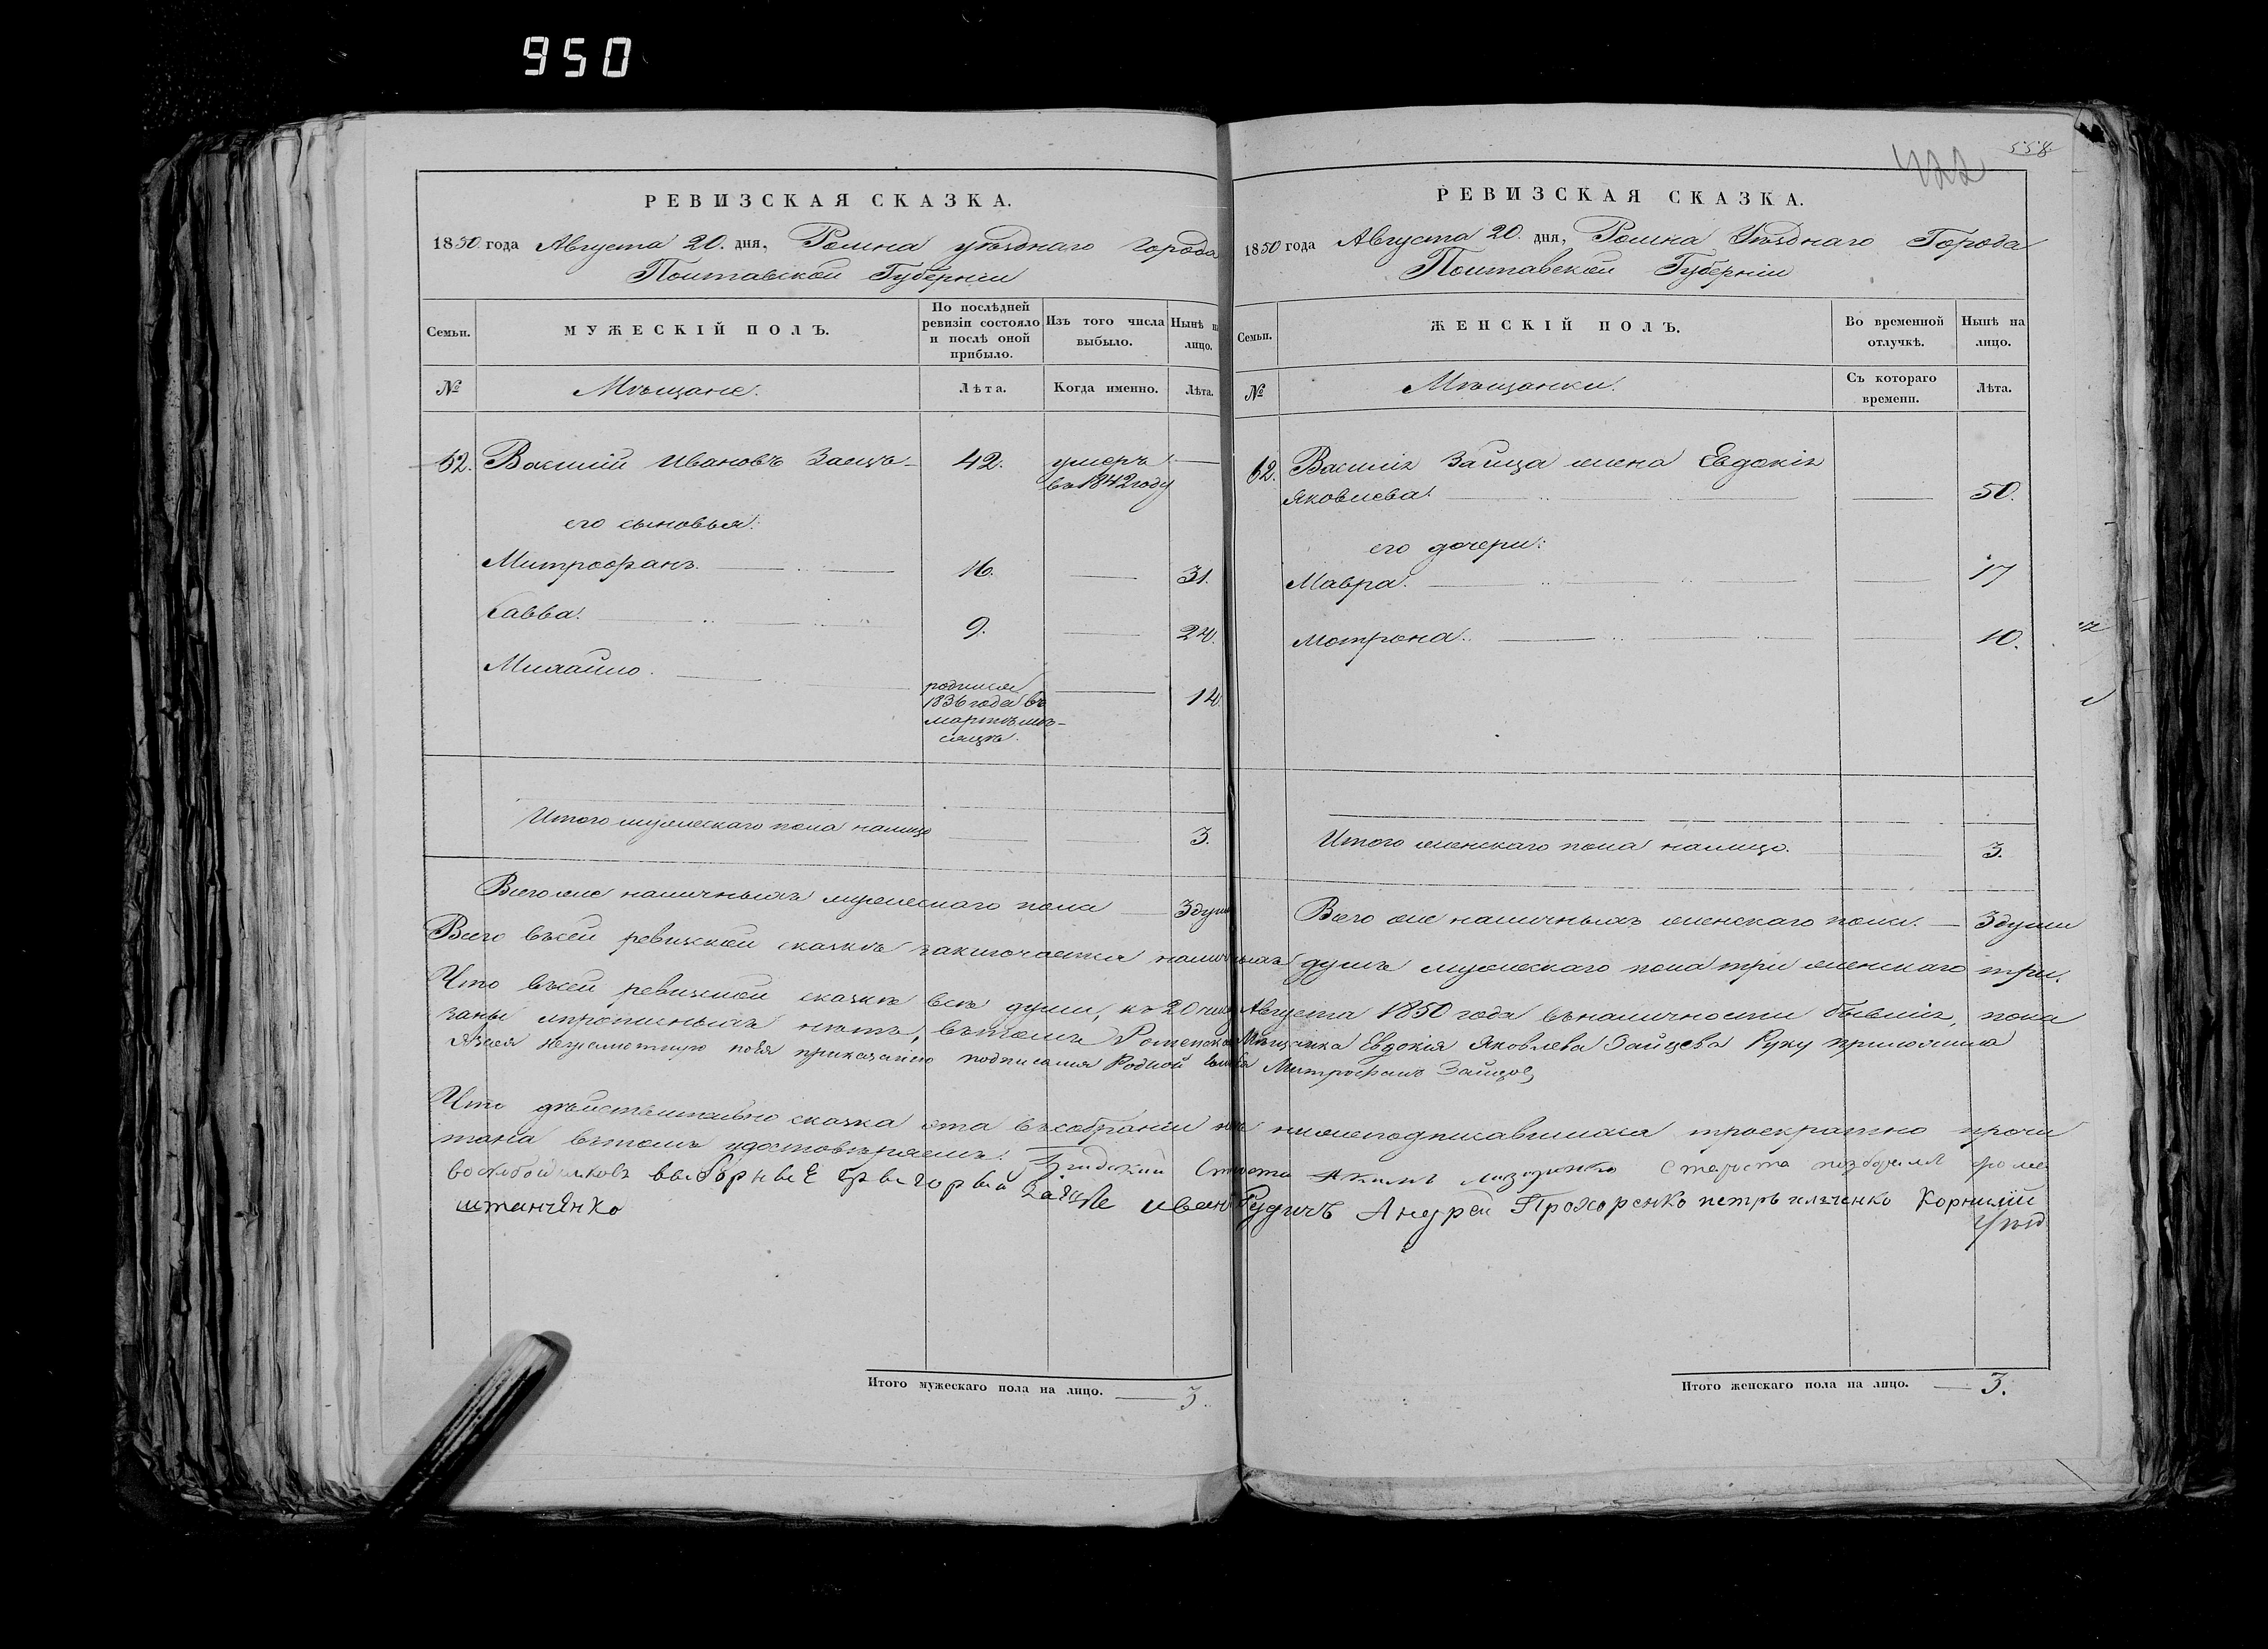 950
РЕВИЗСКАЯ СКАЗКА.
1850 года Августа 20. дня, Ромна уѣзднаго Города
Полтавской Губерніи
Семьи.
МУЖЕСКІЙ ПОЛЪ.
По послѣдней ревизіи состояло и послѣ оной прибыло.
Изъ того числа выбыло.
Нынѣ на лицо.
№
Мѣщане.
Лѣта.
Когда именно.
Лѣта.
62. Василій Ивановъ Заецъ 42. умеръ
въ 1842 году
его сыновья:
Митрофанъ. 16. 31.
Савва. 9. 24.
Михайло. родился 14.
1836 года въ
мартѣ мѣ-
сяцѣ.
Итого мужескаго пола налицо 3.
Всего же наличныхъ мужескаго пола 3 души
558.
422
РЕВИЗСКАЯ СКАЗКА.
1850 года Августа 20. дня, Ромна Уѣзднаго Города
Полтавской Губерніи
Семьи.
ЖЕНСКІЙ ПОЛЪ.
Во временной отлучкѣ.
Нынѣ на лицо.
№
Мѣщанки.
Съ котораго времени.
Лѣта.
62. Василія Зайца жена Евдокія
Яковлева. 50.
его дочери:
Мавра. 17
Мотрона. 10.
Итого женскаго пола налицо. 3.
Всего же наличныхъ женскаго пола. 3 души
Всего въ сей ревизской сказкѣ заключается наличныхъ душъ мужескаго пола три женскаго три.
Что въ сей ревизской сказкѣ всѣ души, къ 20 числу Августа 1850 года въ наличности бывшія, пока
заны и прописныхъ нѣтъ, въ томъ Роменска Мѣщанка Евдокія Яковлева Зайцева Руку приложила
неграмотную по ея приказанію подписался Родной Митрофанъ Зайцов
Что дѣйствительно сказка эта въ собраніи нижеподписавшихся троекратно прочи
тана въ томъ удостовѣряемъ: Староста
выборные Иванъ Рудичъ Андрей Прохоренко петръ Корнилій
Итого мужескаго пола на лицо. 3.
Итого женскаго пола на лицо. 3.